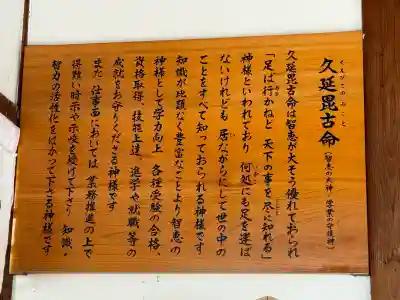 くえびこのみこと
久延毘古命
(智恵の大神 学業の守護神)
久延毘古命は智恵が大そう優れておられ
「足は行かねど 天下の事を尽に知れる」
神様といわれており 何処にも足を運ば
ないけれども 居ながらにして世の中の
ことをすべて知っておられる神様です
知識が比類なく豊富なことより智恵の
神様として学力向上 各種受験の合格、
資格取得、技能上達 進学や就職等の
成就をお守りくださる神様です
また 仕事面においては 業務推進の上で
得難い暗示や示唆を授けて下さり 知識・
智力の活性化をはかって下さる神様です